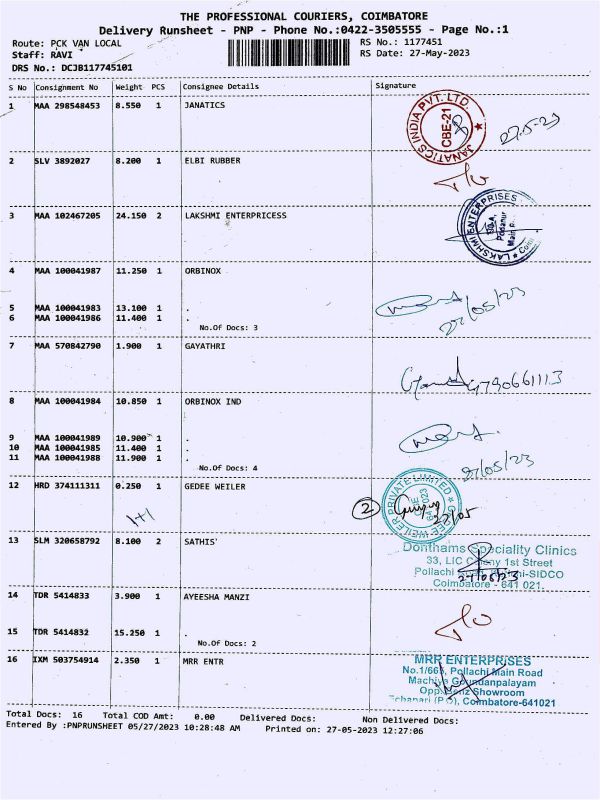 THE PROFESSIONAL COURIERS, COIMBATORE
Delivery Runsheet - PNP - Phone No.:0422-3505555 - Page No.:1
Route: PCK VAN LOCAL RS No.: 1177451
Staff: RAVI RS Date: 27-May-2023
DRS No.: DCJB117745101
S No Consignment No Weight PCS Consignee Details Signature
1 MAA 298548453 8.550 1 JANATICS
JANATICS INDIA PVT. LTD. CBE-21
27-5-23
2 SLV 3892027 8.200 1 ELBI RUBBER
3 MAA 102467205 24.150 2 LAKSHMI ENTERPRICESS
LAKSHMI ENTERPRISES
Main R
4 MAA 100041987 11.250 1 ORBINOX
27/05/23
5 MAA 100041983 13.100 1 .
6 MAA 100041986 11.400 1 .
No.Of Docs: 3
7 MAA 570842790 1.900 1 GAYATHRI
8 MAA 100041984 10.850 1 ORBINOX IND
9 MAA 100041989 10.900 1 .
10 MAA 100041985 11.400 1 .
11 MAA 100041988 11.900 1 .
27/05/23
No.Of Docs: 4
12 HRD 374111311 0.250 1 GEDEE WEILER
GEDEE WEILER PRIVATE LIMITED
641 023
2
27/05
1+1
13 SLM 320658792 8.100 2 SATHIS'
Donthams Speciality Clinics
33, LIC Colony 1st Street
Pollachi
-SIDCO
27/05/23
Coimbatore - 641 021.
14 TDR 5414833 3.900 1 AYEESHA MANZI
15 TDR 5414832 15.250 1 .
No.Of Docs: 2
16 IXM 503754914 2.350 1 MRR ENTR
MRR ENTERPRISES
No.1/665, Pollachi Main Road
Machiya Goundanpalayam
Opp. Benz Showroom
Echanari (P.O), Coimbatore-641021
Total Docs: 16 Total COD Amt: 0.00 Delivered Docs: Non Delivered Docs:
Entered By :PNPRUNSHEET 05/27/2023 10:28:48 AM Printed on: 27-05-2023 12:27:06